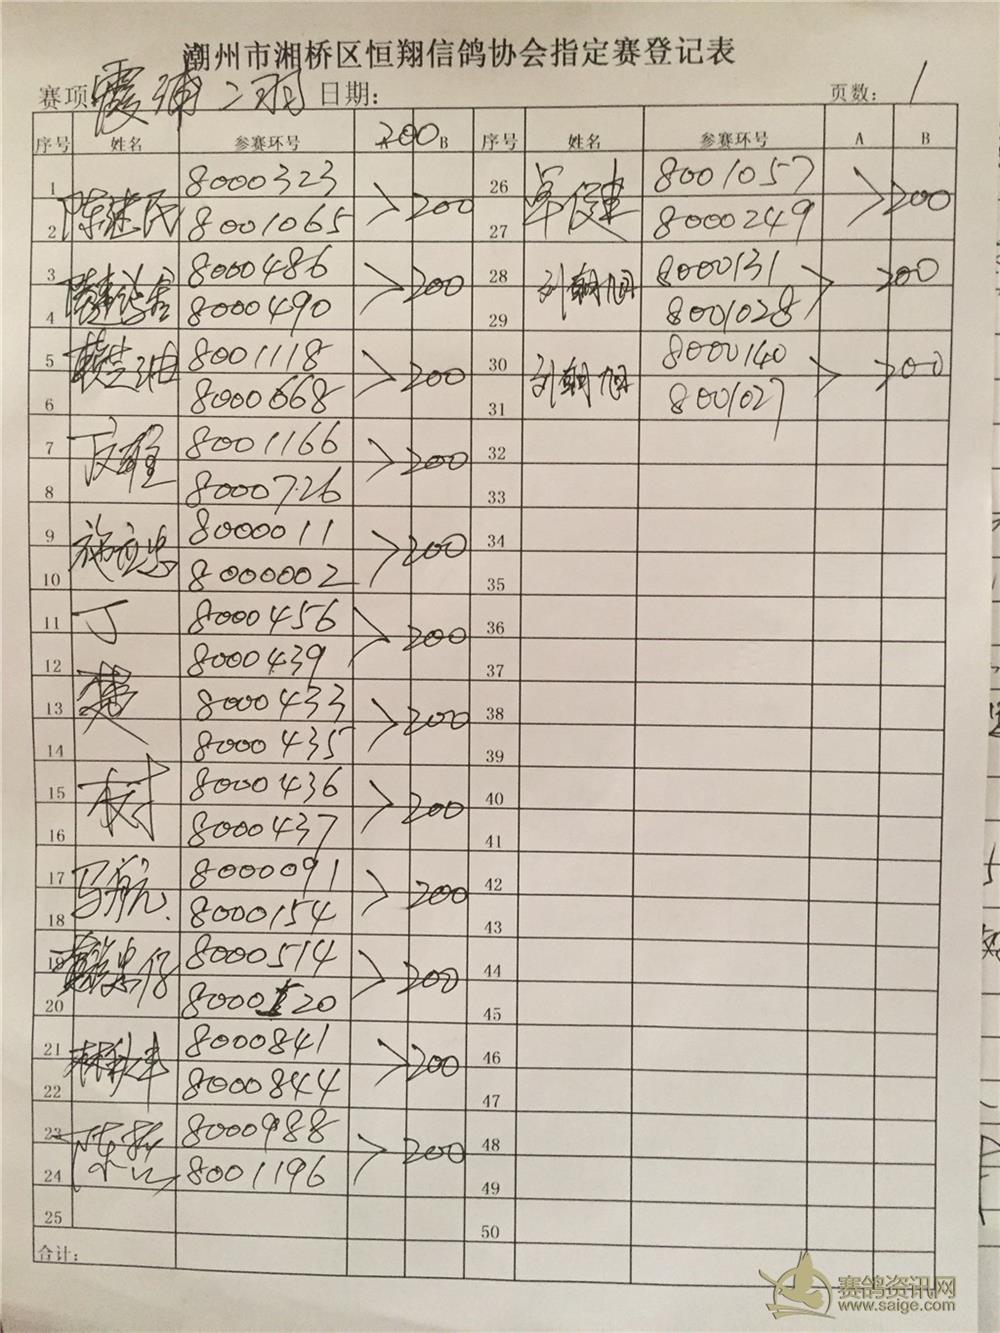 潮州市湘桥区恒翔信鸽协会指定赛登记表
赛项 霞浦二羽 日期: 页数: 1
序号 姓名 参赛环号 A 200 B 序号 姓名 参赛环号 A B
1 8000323 26 8001057
2 陈建民 8001065 >200 27 卓俊建 8000249 >200
3 8000486 28 8000131
4 8000490 >200 29 刘朝旭 8001028 >200
5 8001118 30 8000140
6 8000668 >200 31 刘朝旭 8001027 >200
7 8001166 32
8 8000726 >200 33
9 8000011 34
10 施应忠 8000002 >200 35
11 丁 8000456 36
12 8000439 >200 37
13 楚 8000433 38
14 8000435 >200 39
15 树 8000436 40
16 8000437 >200 41
17 马航 8000091 42
18 8000154 >200 43
19 8000514 44
20 8000520 >200 45
21 8000841 46
22 8000844 >200 47
23 8000988 48
24 8001196 >200 49
25 50
合计:
赛鸽资讯网
www.saige.com